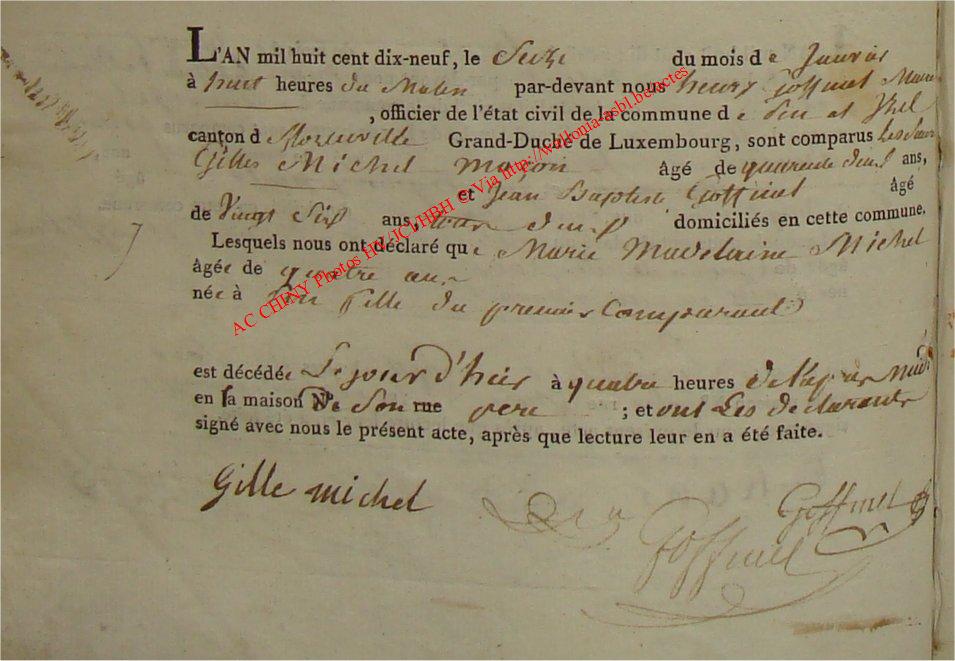 L'AN mil huit cent dix-neuf, le Seize du mois de Janvier
à huit heures du Matin par-devant nous henry Goffinet Maire
, officier de l'état civil de la commune de et Izel
canton d Grand-Duché de Luxembourg, sont comparus Les Sieurs
Gilles Michel Maçon âgé de quarente deux ans,
et Jean Baptiste Goffinet âgé
de Vingt Six ans, tous deux domiciliés en cette commune.
Lesquels nous ont déclaré que Marie Madelaine Michel
âgée de quatre ans
née à Son fille du premier Comparant
est décédée Le jour d'hier à quatre heures de l'après Midi
en la maison De Son rue pere ; et ont Les declarants
signé avec nous le présent acte, après que lecture leur en a été faite.
Gille michel
Goffinet
Goffinet
AC CHINY Photos HB/JCI/HBH © Via http://wallonia-asbl.be/actes